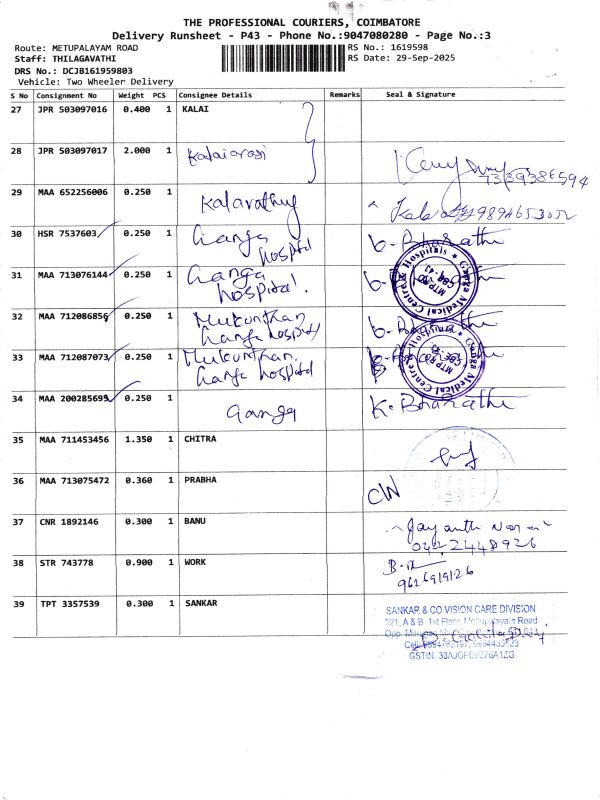 THE PROFESSIONAL COURIERS, COIMBATORE
Delivery Runsheet - P43 - Phone No.:9047080280 - Page No.:3
Route: METUPALAYAM ROAD
RS No.: 1619598
Staff: THILAGAVATHI
RS Date: 29-Sep-2025
DRS No.: DCJB161959803
Vehicle: Two Wheeler Delivery
S No Consignment No Weight PCS Consignee Details Remarks Seal & Signature
27 JPR 503097016 0.400 1 KALAI
28 JPR 503097017 2.000 1 Kalaiarasi
29 MAA 652256006 0.250 1 Kalavathy
30 HSR 7537603 0.250 1 Ganga hospital b. Bharathi
31 MAA 713076144 0.250 1 Ganga hospital.
32 MAA 712086856 0.250 1 Mukunthan Ganga hospital
33 MAA 712087073 0.250 1 Mukunthan. Ganga hospital
Ganga Medical Centre & Hospitals
MTP RD
CBE-43
34 MAA 200285695 0.250 1 Ganga K. Bharathi
35 MAA 711453456 1.350 1 CHITRA
36 MAA 713075472 0.360 1 PRABHA
37 CNR 1892146 0.300 1 BANU
0422448926
38 STR 743778 0.900 1 WORK
9626919126
39 TPT 3357539 0.300 1 SANKAR
SANKAR & CO VISION CARE DIVISION
321, A & B, 1st Floor, Mettupalayam Road
GSTIN. 33AJOPD9276A1ZG